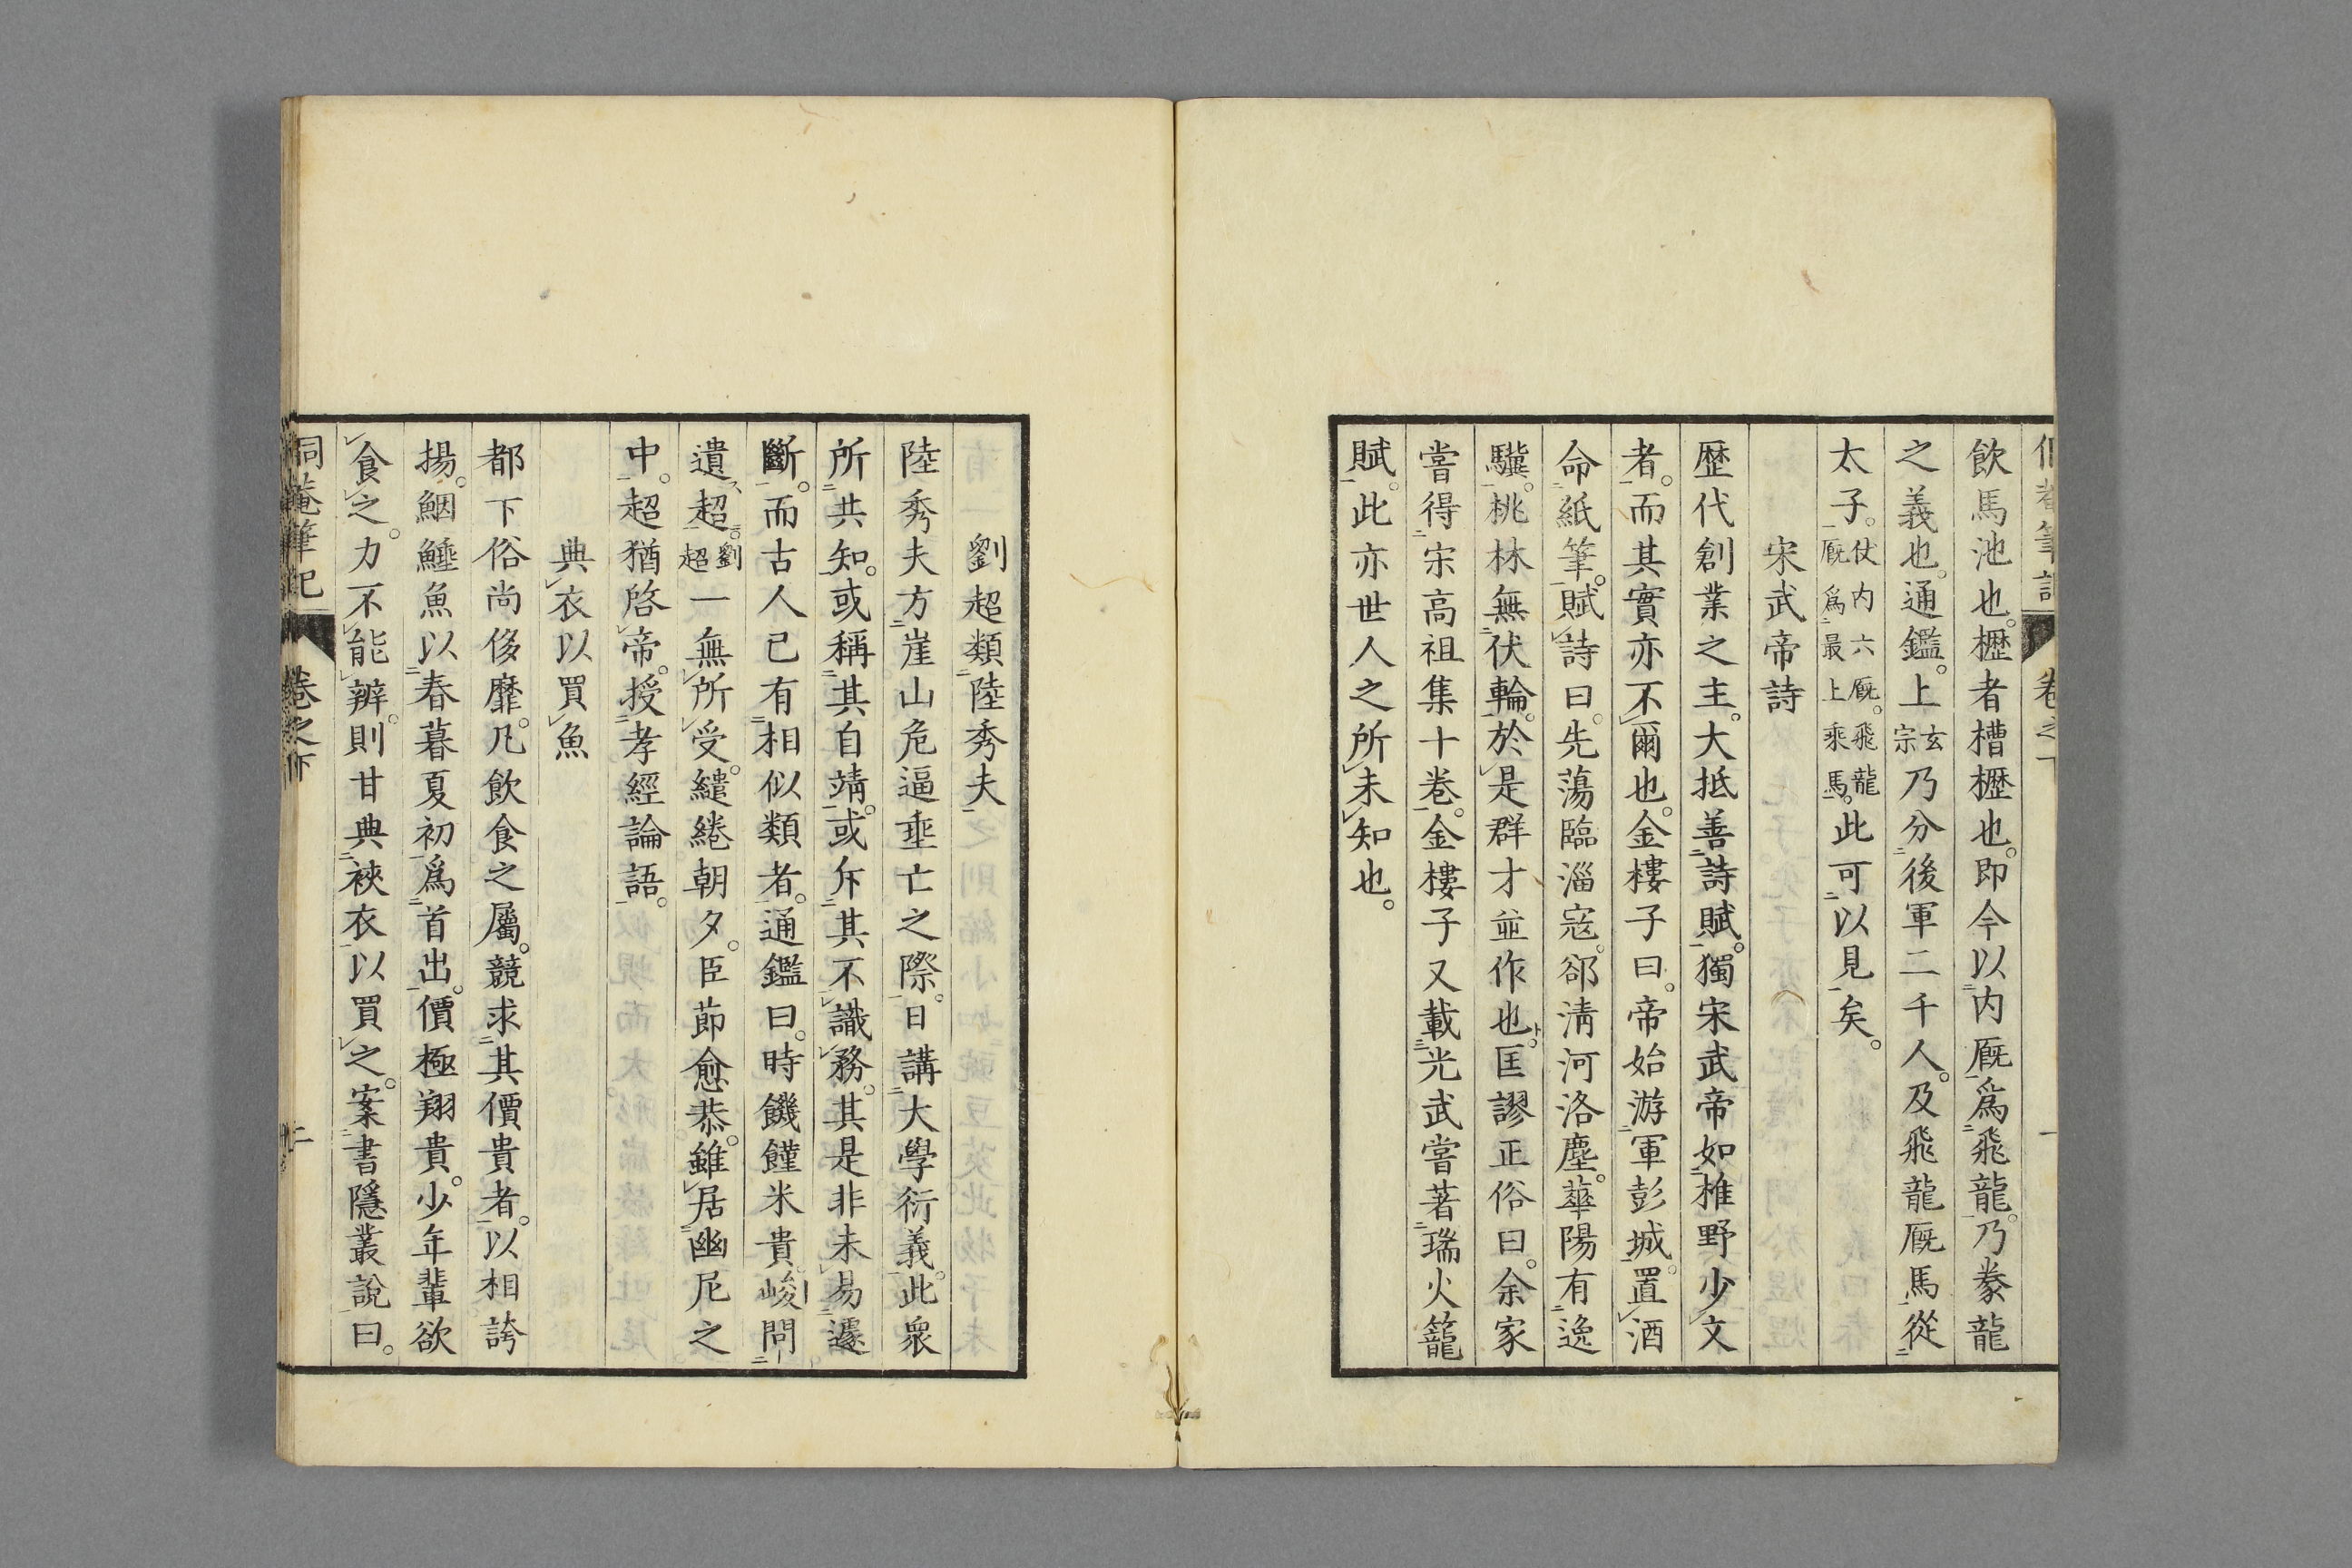 飲馬池也。櫪者槽櫪也。即今以内厩爲飛龍。乃豢龍
之義也。通鑑。上玄宗乃分後軍二千人。及飛龍厩馬。從
太子。仗内六厩。飛龍厩爲最上乘馬。此可以見矣。
宋武帝詩
歴代創業之主。大抵善詩賦。獨宋武帝如椎野少文
者。而其實亦不爾也。金樓子曰。帝始游軍彭城。置酒
命紙筆。賦詩曰。先蕩臨淄寇。郤淸河洛塵。華陽有逸
驥。桃林無伏輪。於是群才並作也。匡謬正俗曰。余家
嘗得宋高祖集十卷。金樓子又載光武嘗著瑞火籠
賦。此亦世人之所未知也。
劉超類陸秀夫
陸秀夫方崖山危逼垂亡之際。日講大學衍義。此衆
所共知。或稱其自靖。或斥其不識務。其是非未易遽
斷。而古人已有相似類者。通鑑曰。時饑饉米貴。峻問
遺超。劉超一無所受。繾綣朝夕。臣節愈恭。雖居幽厄之
中。超猶啓帝。授孝經論語。
典衣以買魚
都下俗尚侈靡。凡飲食之屬。競求其價貴者。以相誇
揚。鮰鱧魚以春暮夏初爲首出。價極翔貴。少年輩欲
食之。力不能辨。則甘典裌衣以買之。案書隱叢說曰。
侗菴筆記 卷之下 二